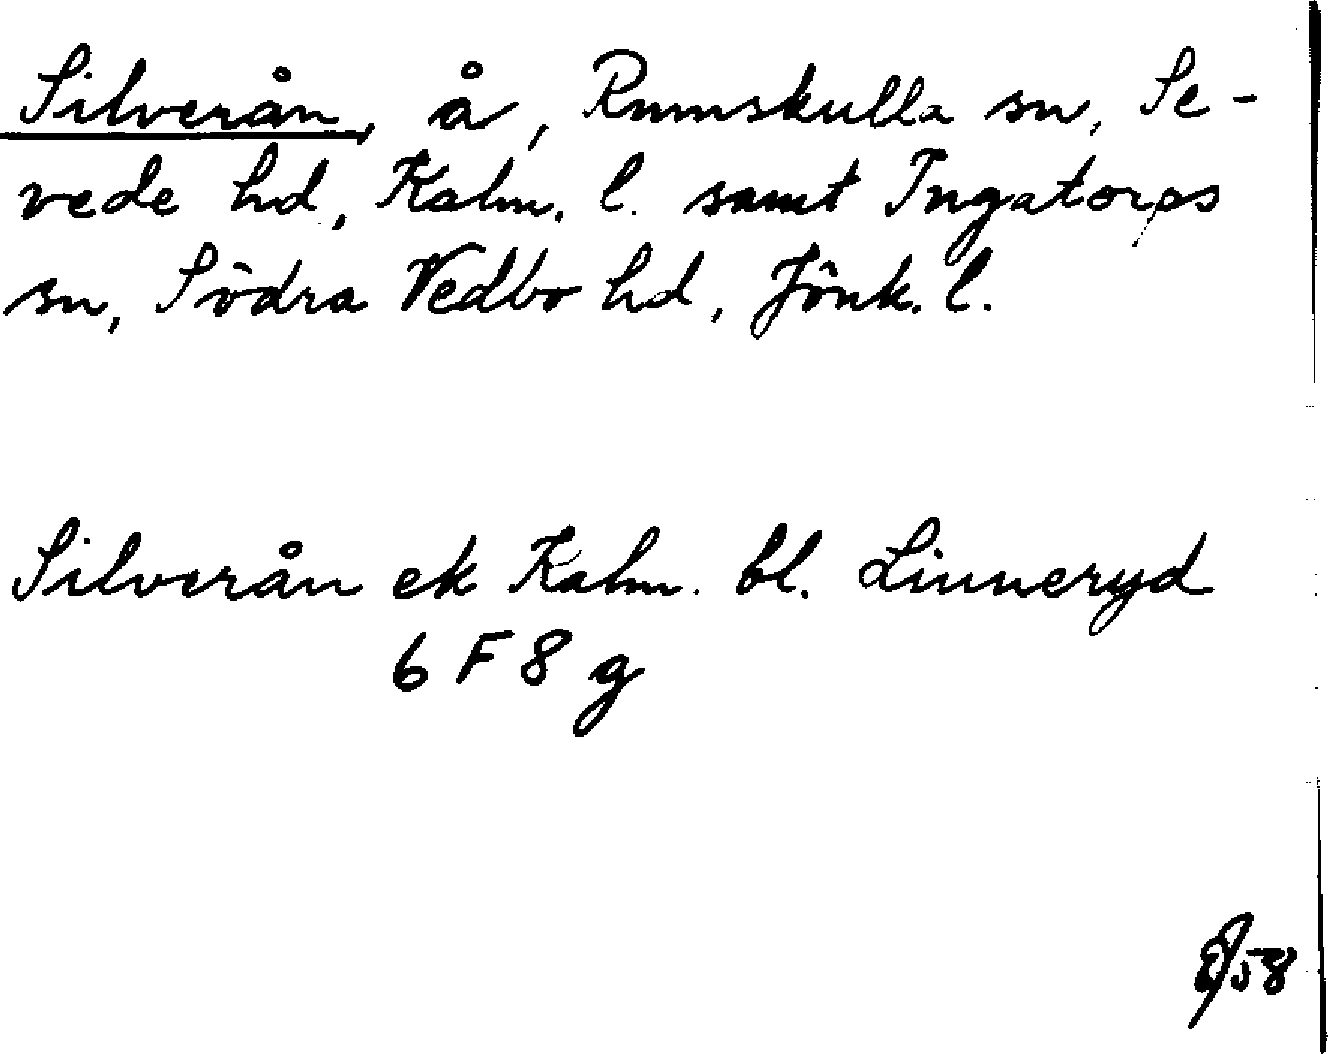 Silverån, å, Rumskulla sn, Se-
vede hd, Kalm. l. samt Ingatorps
sn, Södra Vedbo hd, Jönk. l.
Silverån ek Kalm. bl. Linneryd
6 F 8 g
58